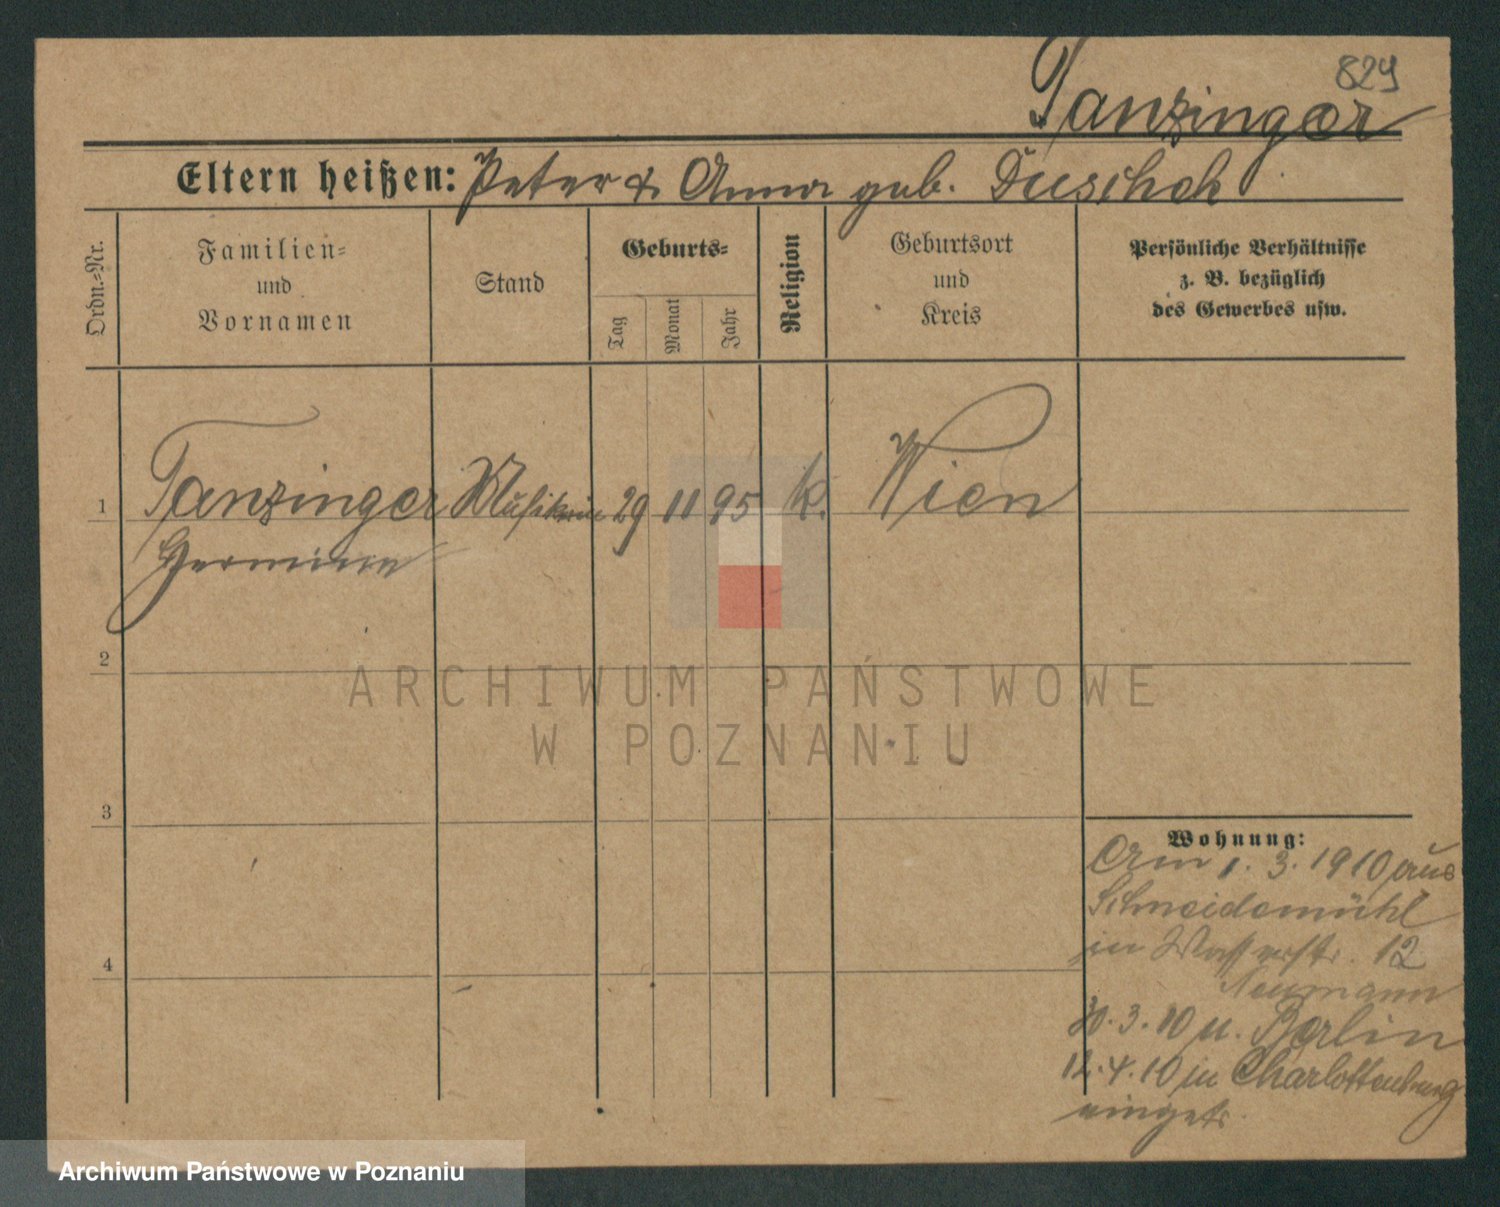 829
Tanzinger
Eltern heißen: Peter & Anna geb. Duschek
Ordn.-Nr.
Familien-
und
Vornamen
Stand
Geburts-
Tag
Monat
Jahr
Religion
Geburtsort
und
Kreis
Persönliche Verhältnisse
z. B. bezüglich
des Gewerbes usw.
1 Tanzinger Musikerin 29 11 95 k. Wien
Hermine
2
ARCHIWUM PAŃSTWOWE
W POZNANIU
3
Wohnung:
Am 1. 3. 1910 aus
Schneidemühl
in Wasserstr. 12
4
Neumann
30. 3. 10 u. Berlin
12. 4. 10 in Charlottenburg
eingetr.
Archiwum Państwowe w Poznaniu